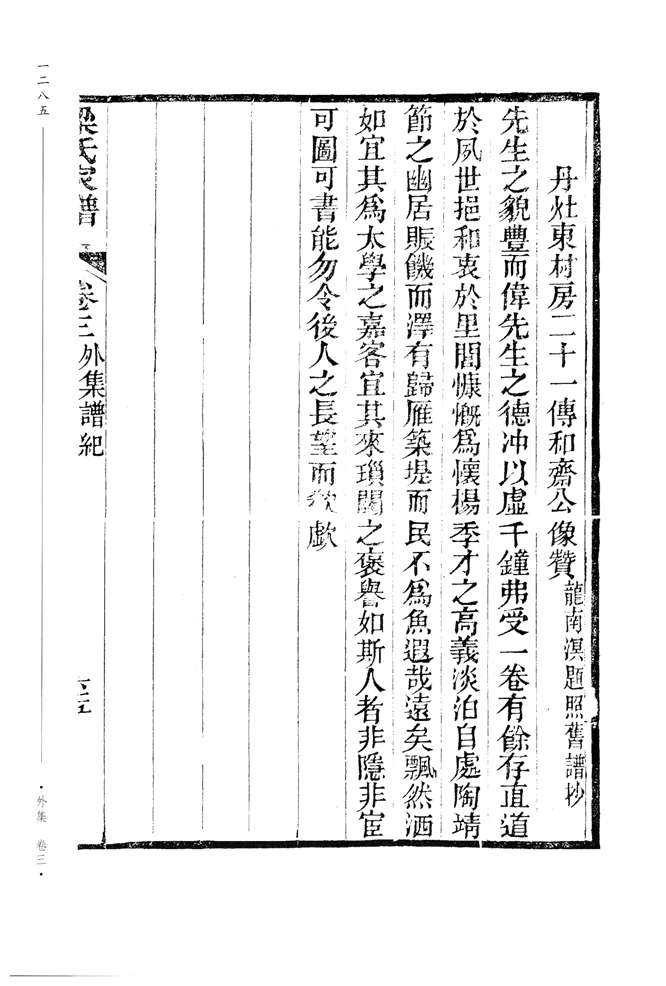 丹灶東村房二十一傳和齋公像贊龍南溟題照舊譜抄
先生之貌豐而偉先生之德冲以虛千鐘弗受一卷有餘存直道
於夙世挹和衷於里閭慷慨爲懷楊季才之高義淡泊自處陶靖
節之幽居賑饑而澤有歸雁築堤而民不爲魚遐哉遠矣飄然洒
如宜其爲太學之嘉客宜其來瑣闥之褒譽如斯人者非隱非宦
可圖可書能勿令後人之長望而欷歔
梁氏家譜 卷三外集譜紀
一二八五
外集 卷三